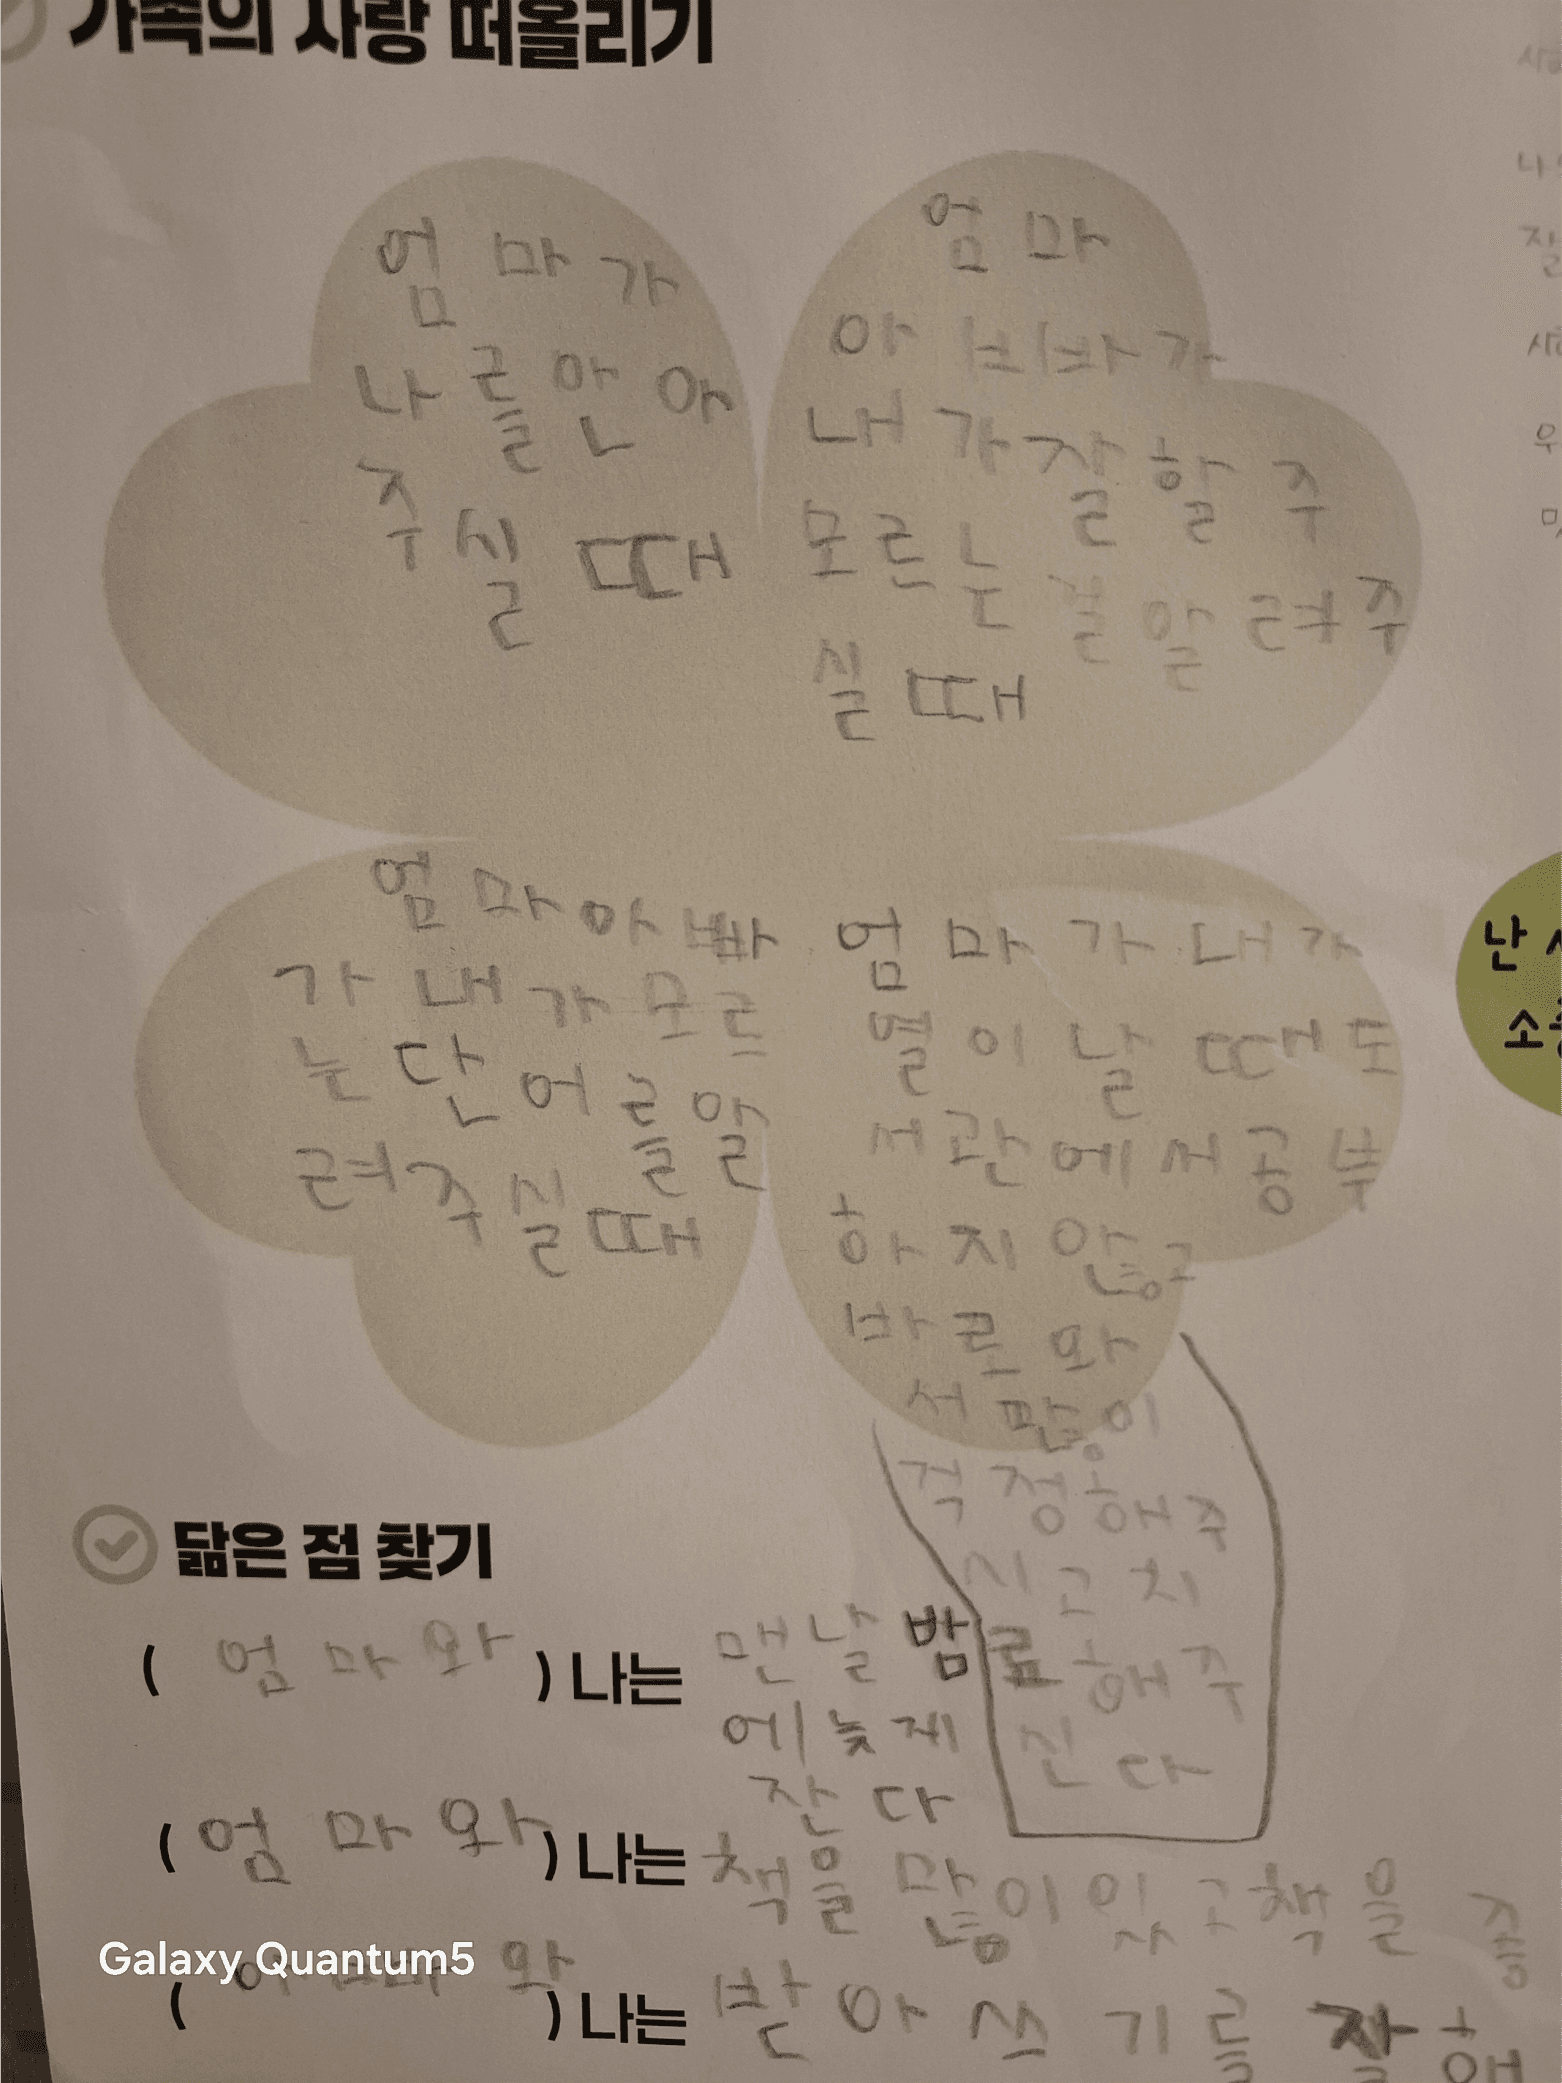 가족의 사랑 떠올리기
엄마가
나를안아
주실때
엄마
아빠가
내가잘할주
모르는걸알려주
실때
엄마아빠
가내가모르
는단어를알
려주실때
엄마가내가
열이날때도
서관에서공부
하지안고
바로와
서많이
걱정해주
시고치
료해주
신다
난
소중
닮은 점 찾기
( 엄마와 ) 나는 맨날밤
에늦게
잔다
( 엄마와 ) 나는 책을많이있고책을
( 와 ) 나는 받아쓰기를잘해
Galaxy Quantum5